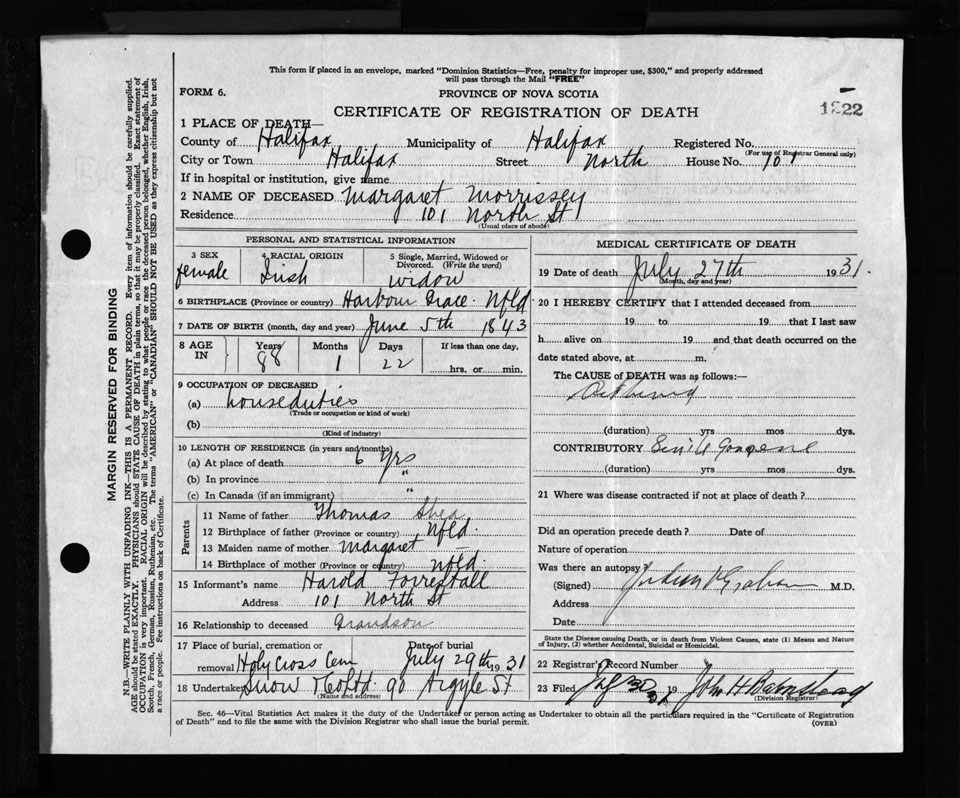 This form if placed in an envelope, marked "Dominion Statistics—Free, penalty for improper use, $300," and properly addressed
will pass through the Mail "FREE"
FORM 6.
PROVINCE OF NOVA SCOTIA
CERTIFICATE OF REGISTRATION OF DEATH
1 PLACE OF DEATH—
County of Halifax Municipality of Halifax Registered No.
(For use of Registrar General only)
City or Town Halifax Street North House No. 101
If in hospital or institution, give name
2 NAME OF DECEASED Margaret Morrissey
Residence 101 North St
(Usual place of abode)
PERSONAL AND STATISTICAL INFORMATION
3 SEX female
4 RACIAL ORIGIN Irish
5 Single, Married, Widowed or Divorced. (Write the word) widow
6 BIRTHPLACE (Province or country) Harbour Grace Nfld
7 DATE OF BIRTH (month, day and year) June 5th 1843
8 AGE IN Years 88 Months 1 Days 22 If less than one day, hrs. or min.
9 OCCUPATION OF DECEASED
(a) houseduties
(Trade or occupation or kind of work)
(b)
(Kind of industry)
10 LENGTH OF RESIDENCE (in years and months)
(a) At place of death 6 yrs
(b) In province "
(c) In Canada (if an immigrant) "
Parents
11 Name of father Thomas Shea
12 Birthplace of father (Province or country) Nfld.
13 Maiden name of mother Margaret
14 Birthplace of mother (Province or country) Nfld.
15 Informant's name Harold Forrestall
Address 101 North St
16 Relationship to deceased Grandson
17 Place of burial, cremation or removal Holy Cross Cem Date of burial July 29th 1931
18 Undertaker Snow & Co Ltd. 90 Argyle St
(Name and address)
MEDICAL CERTIFICATE OF DEATH
19 Date of death July 27th 1931.
(Month, day and year)
20 I HEREBY CERTIFY that I attended deceased from
19 to 19 that I last saw
h alive on 19 and that death occurred on the
date stated above, at m.
The CAUSE of DEATH was as follows:—
(duration) yrs mos dys.
CONTRIBUTORY Senile
(duration) yrs mos dys.
21 Where was disease contracted if not at place of death?
Did an operation precede death? Date of
Nature of operation
Was there an autopsy?
(Signed) M.D.
Address
Date
State the Disease causing Death, or in death from Violent Causes, state (1) Means and Nature
of Injury, (2) whether Accidental, Suicidal or Homicidal.
22 Registrar's Record Number
23 Filed 30 1931 John H Barnstead
(Division Registrar)
Sec. 46—Vital Statistics Act makes it the duty of the Undertaker or person acting as Undertaker to obtain all the particulars required in the "Certificate of Registration
of Death" and to file the same with the Division Registrar who shall issue the burial permit.
(OVER)
MARGIN RESERVED FOR BINDING
N.B.—WRITE PLAINLY WITH UNFADING INK—THIS IS A PERMANENT RECORD. Every item of information should be carefully supplied.
AGE should be stated EXACTLY. PHYSICIANS should STATE CAUSE OF DEATH in plain terms, so that it may be properly classified. Exact statement of
OCCUPATION is very important. RACIAL ORIGIN will be described by stating to what people or race the deceased person belonged, whether English, Irish,
Scotch, French, German, Russian, Ruthenian, etc. The terms "AMERICAN" or "CANADIAN" SHOULD NOT BE USED as they express citizenship but not
a race or people. See instructions on back of Certificate.